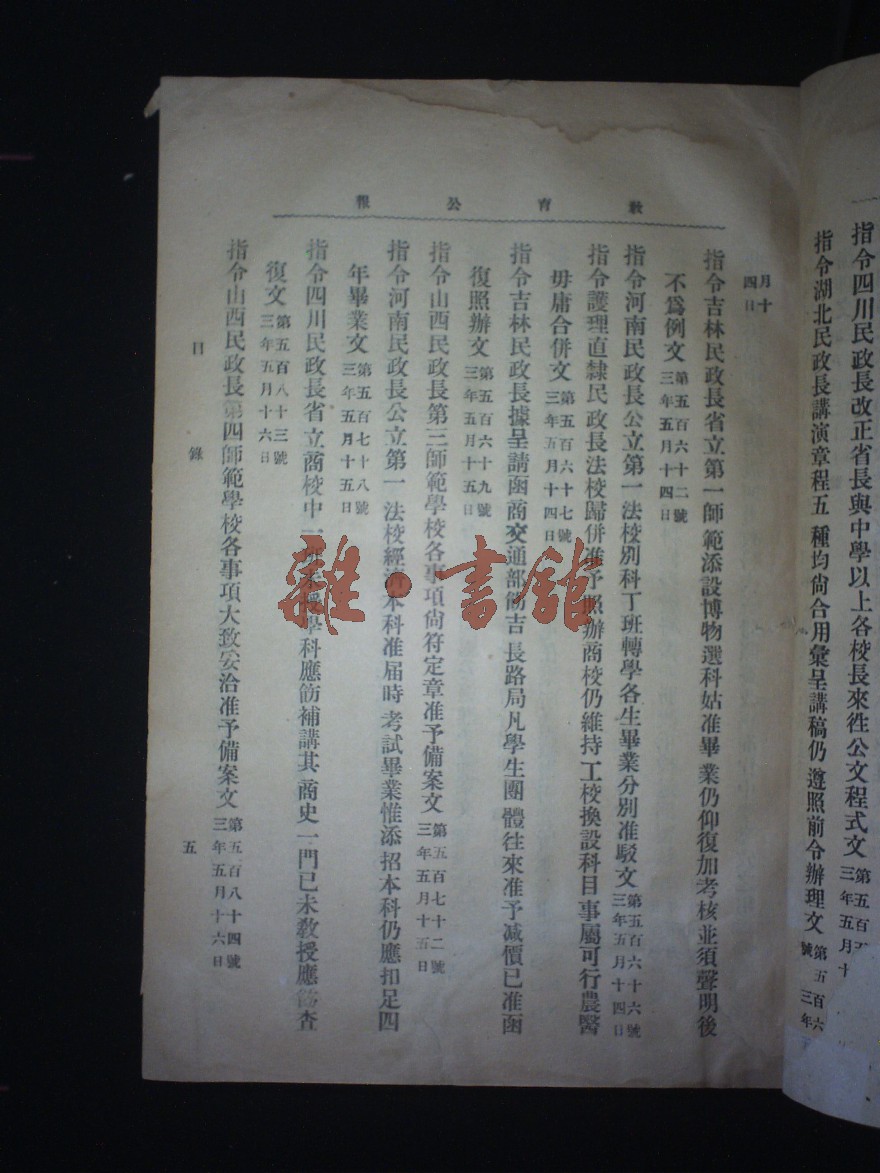 一指令四川民政長改正省長與中學以上各校長來徃公文程式文 第五百
三年五月十
指令湖北民政長講演章程五種均尙合用彙呈講稿仍遵照前令辦理文 第五百六
號 三年
教育公報
月十
四日
指令吉林民政長省立第一師範添設博物選科姑准畢業仍仰復加考核並須聲明後
不爲例文 第五百六十二號
三年五月十四日
指令河南民政長公立第一法校別科丁班轉學各生畢業分別准駁文 第五百六十六號
三年五月十四日
指令護理直隸民政長法校歸併准予照辦商校仍維持工校換設科目事屬可行農醫
毋庸合併文 第五百六十七號
三年五月十四日
指令吉林民政長據呈請函商交通部飭吉長路局凡學生團體往來准予減價已准函
復照辦文 第五百六十九號
三年五月十五日
指令山西民政長第三師範學校各事項尙符定章准予備案文 第五百七十二號
三年五月十五日
指令河南民政長公立第一法校經濟本科准届時考試畢業惟添招本科仍應扣足四
年畢業文 第五百七十八號
三年五月十五日
指令四川民政長省立商校中一班未授學科應飭補講其商史一門已未教授應飭查
復文 第五百八十三號
三年五月十六日
指令山西民政長第四師範學校各事項大致妥洽准予備案文 第五百八十四號
三年五月十六日
目錄
五
雜·書館